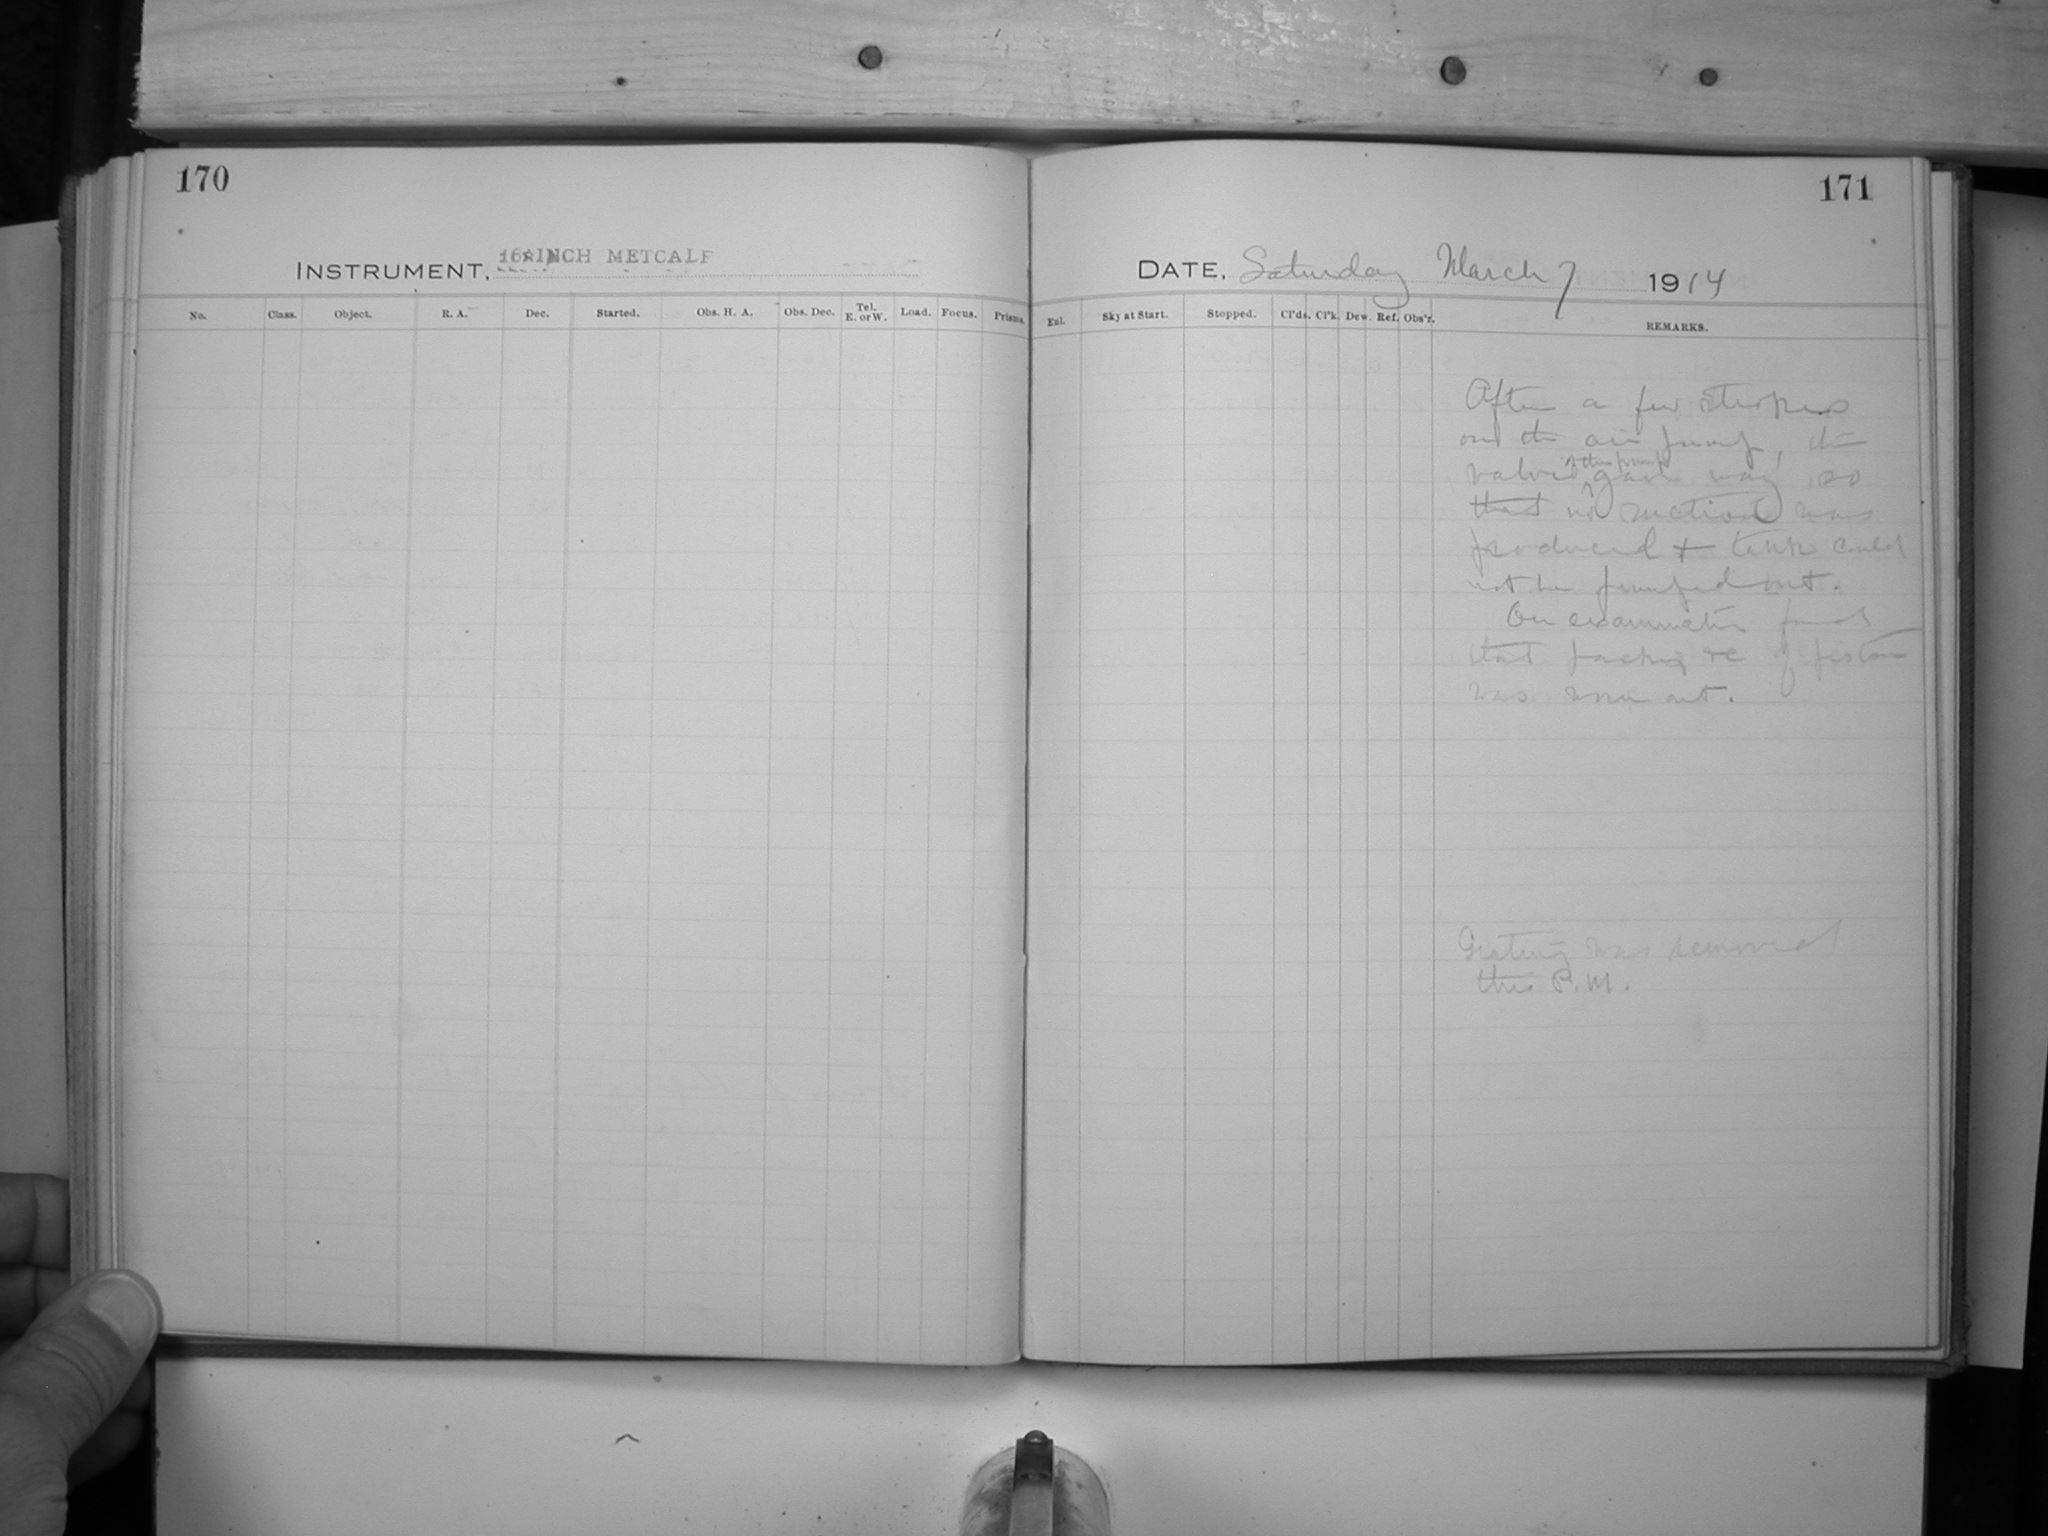 170
171
INSTRUMENT, 16 INCH METCALF
DATE, Saturday March 7 1914
No. Class. Object. R. A. Dec. Started. Obs. H. A. Obs. Dec. Tel. E. or W. Load. Focus. Prisms.
Enl. Sky at Start. Stopped. Cl'ds. Cl'k. Dew. Ref. Obs'r. REMARKS.
After a few strokes
on the air pump, the
valve of the pump gave way so
that no suction was
produced & tank could
not be pumped out.
On examination found
that packing of piston
was worn out.
Grating was removed
this P.M.